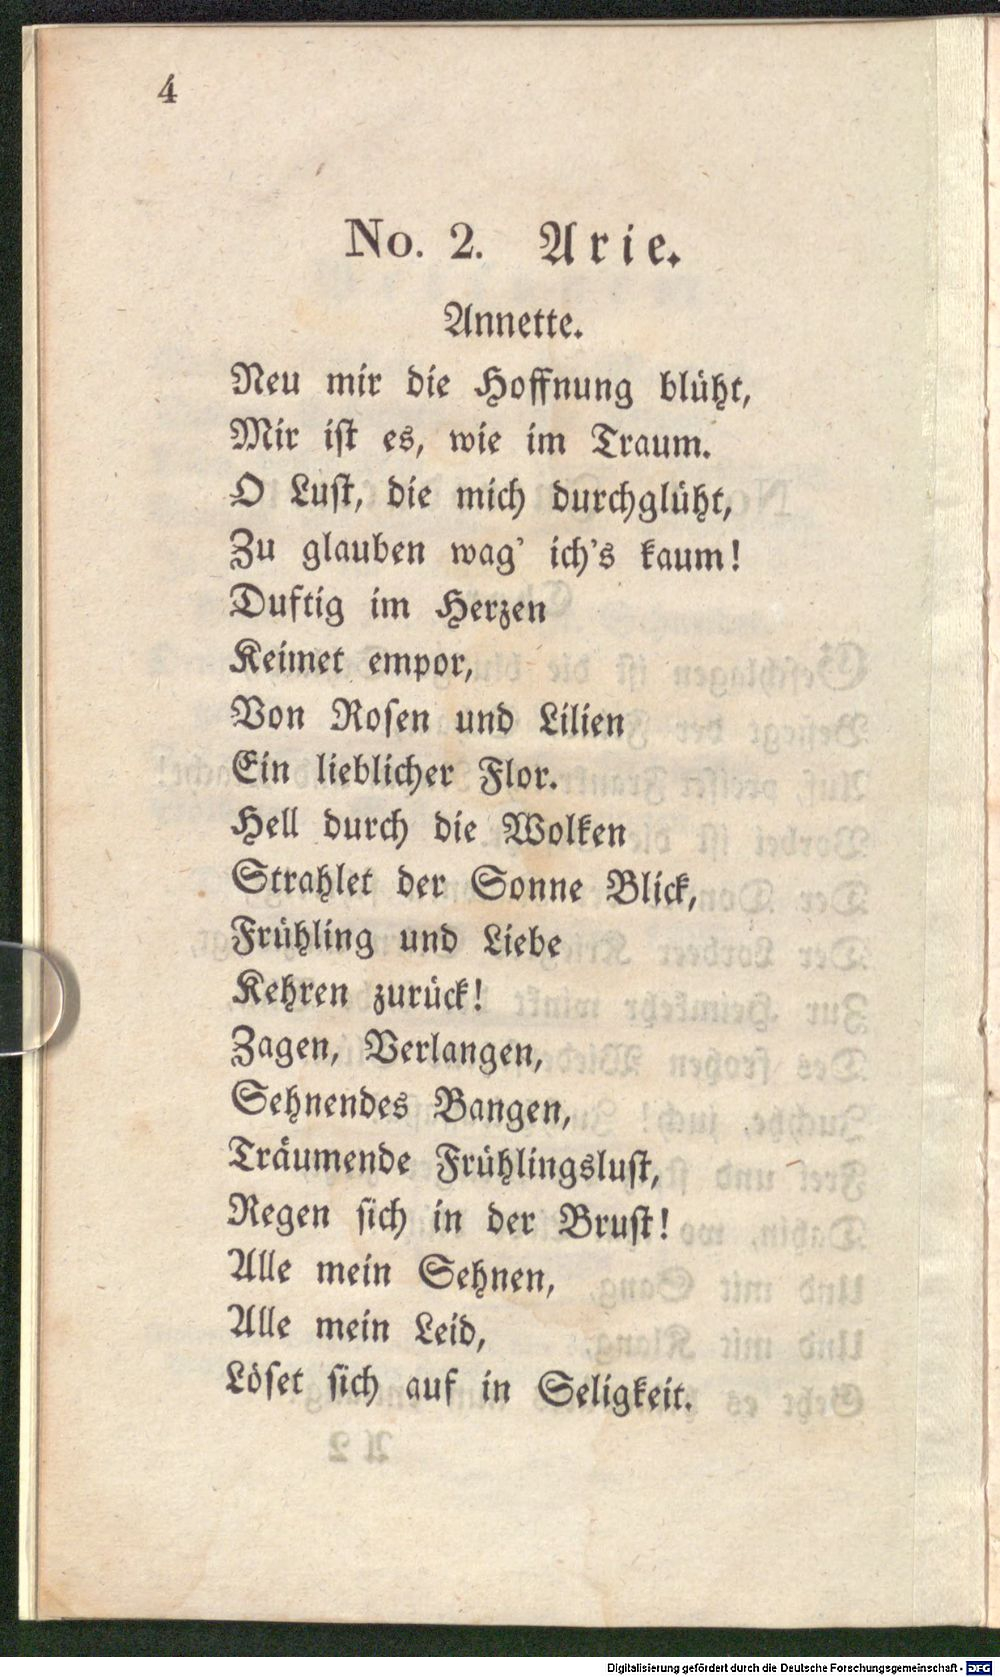 4
No. 2. Arie.
Annette.
Neu mir die Hoffnung blüht,
Mir ist es, wie im Traum.
O Lust, die mich durchglüht,
Zu glauben wag' ich's kaum!
Duftig im Herzen
Keimet empor,
Von Rosen und Lilien
Ein lieblicher Flor.
Hell durch die Wolken
Strahlet der Sonne Blick,
Frühling und Liebe
Kehren zurück!
Zagen, Verlangen,
Sehnendes Bangen,
Träumende Frühlingslust,
Regen sich in der Brust!
Alle mein Sehnen,
Alle mein Leid,
Löset sich auf in Seligkeit.
Digitalisierung gefördert durch die Deutsche Forschungsgemeinschaft - DFG